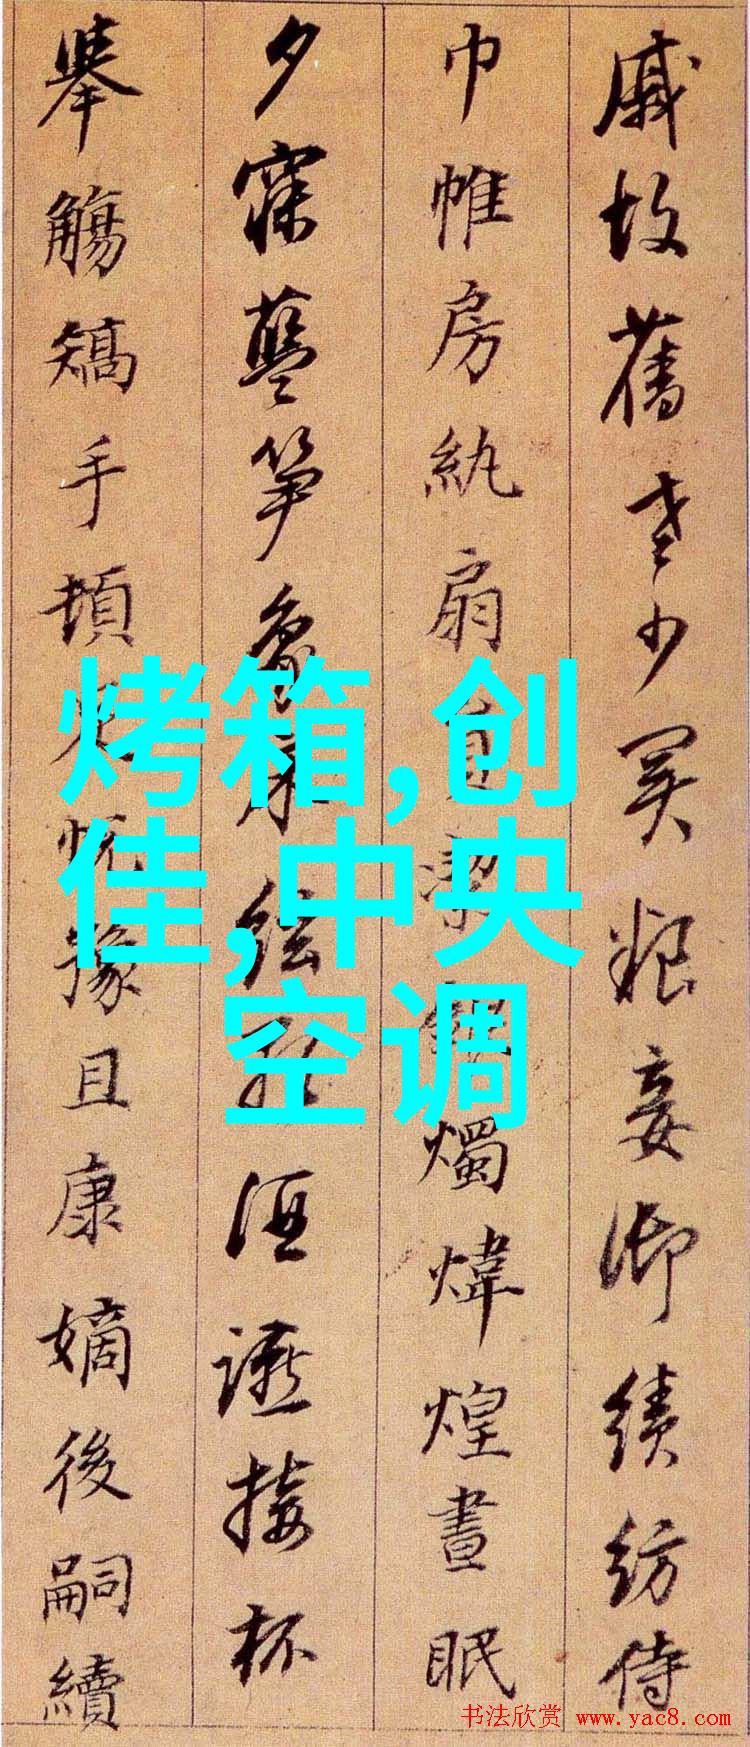 戚故舊老少異粮妾御績紡侍
巾帷房紈扇員潔銀燭煒煌晝眠
夕寐藍笋象床絃歌酒讌接杯
舉觴矯手頓足悅豫且康嫡後嗣續
烤箱,创
佳,中央
空调
书法欣赏 www.yac8.com